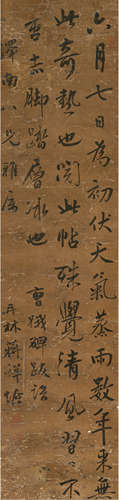 六月七日為初伏天氣蒸雨數年來無
此奇熱也閱此帖殊覺清風習習不
啻赤腳踏層冰也 曹娥碑跋語
澤南八兄雅屬
丹林蔣